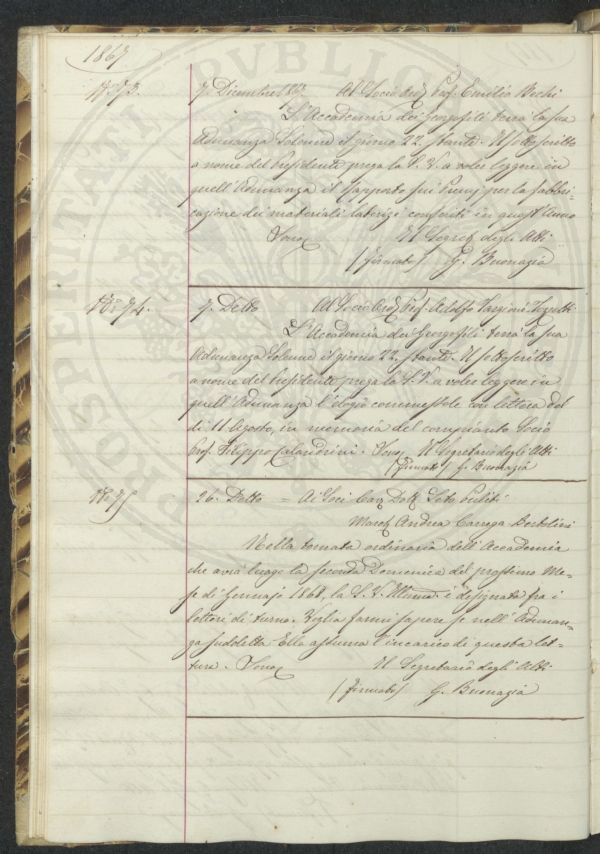 1867
7. Dicembre 1867 Al Socio Ord. Prof. Emilio Bechi
L'Accademia dei Georgofili terrà la sua
Adunanza Solenne il giorno 22. stante. Il sottoscritto
a nome del Presidente prega la S. V. a voler leggere in
quell'Adunanza il Rapporto sui Premj per la fabbri-
cazione dei materiali laterizi conferiti in quest'Anno
Il Segret. degli Atti
(firmato) G. Buonazia
7. Detto Al Socio Ord. Prof. Adolfo Targioni Tozzetti
L'Accademia dei Georgofili terrà la sua
Adunanza Solenne il giorno 22. stante. Il sottoscritto
a nome del Presidente prega la S. V. a voler leggere in
quell'Adunanza l'elogio commessole con lettera del
dì 11 Agosto, in memoria del compianto Socio
Prof. Filippo Calandrini. Il Segretario degli Atti
(firmato) G. Buonazia
26. Detto = Ai Soci
March. Andrea Carrega Bertolini
Nella tornata ordinaria dell'Accademia
che avrà luogo la seconda Domenica del prossimo Me-
se di Gennajo 1868, la S. V. Illma è designata fra i
lettori di turno. Voglia farmi sapere se nell'Adunan-
za suddetta Ella assuma l'incarico di questa let-
tura. Il Segretario degli Atti
(firmato) G. Buonazia
PROSPERITATI PUBLICAE